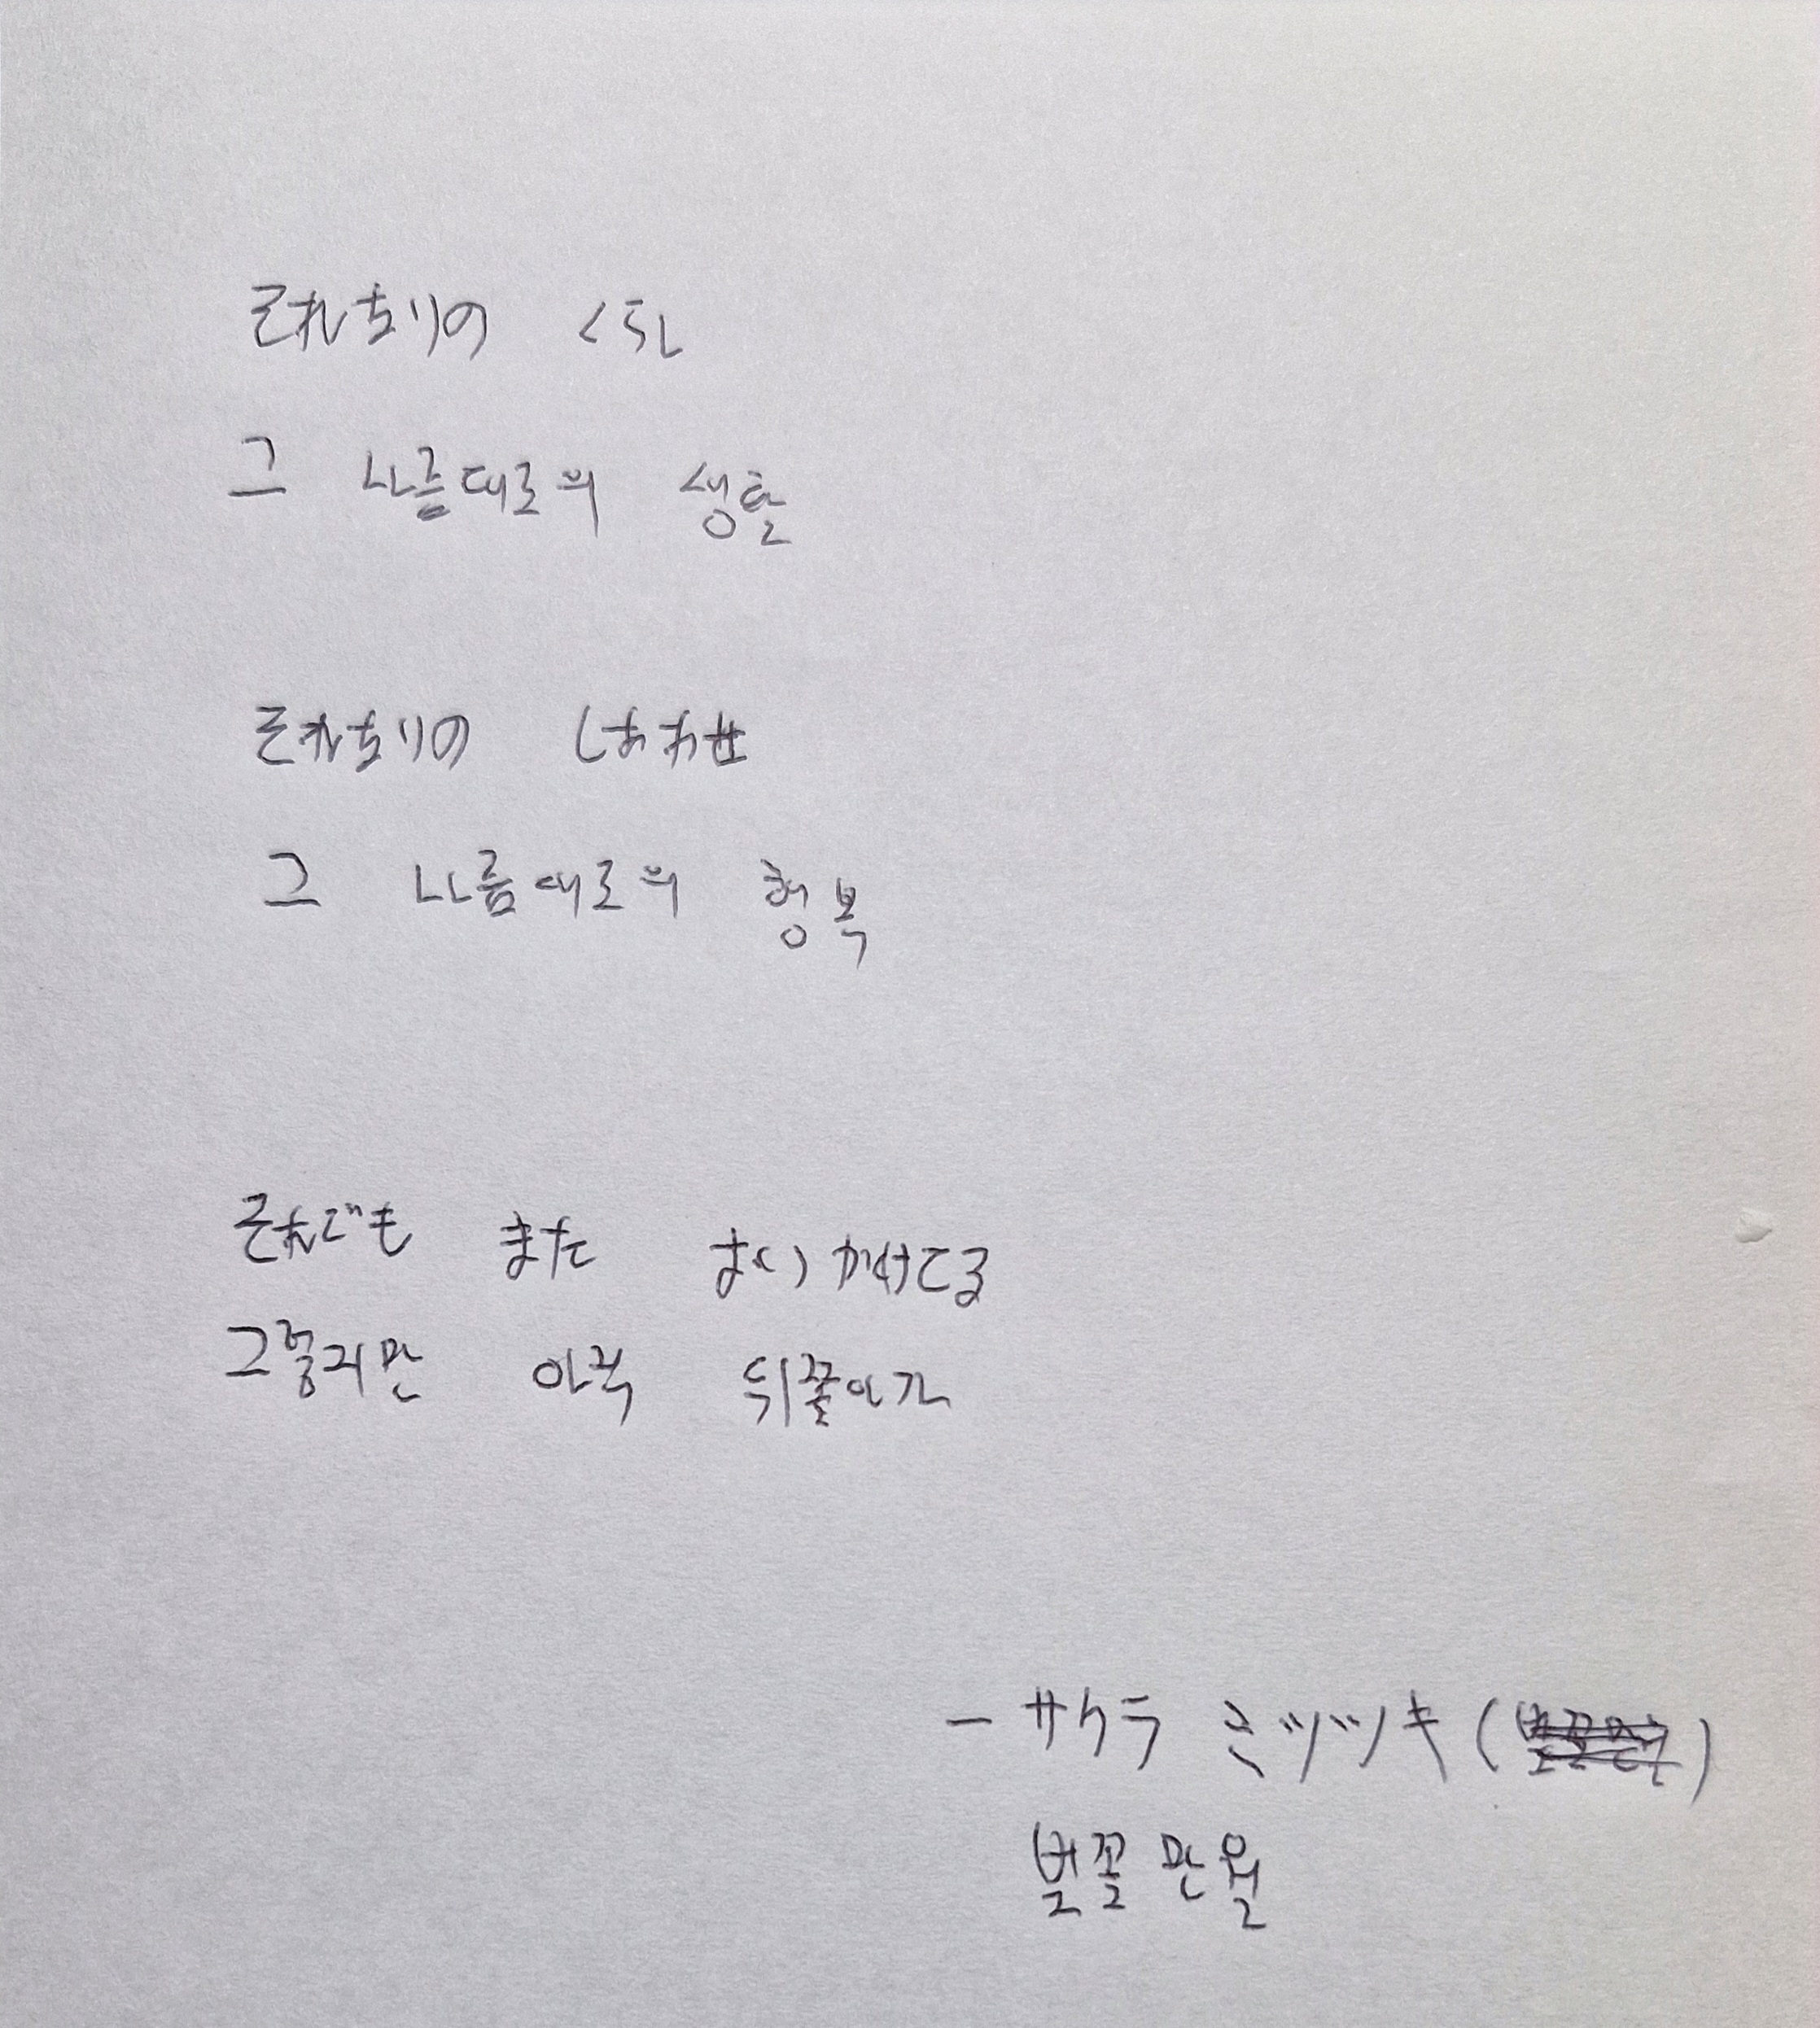 それなりの くらし
그 나름대로의 생활
それなりの しあわせ
그 나름대로의 행복
それでも また おいかけてる
그렇지만 아직 뒤쫓아가
- サクラ ミヅツキ ( )
벚꽃 만월